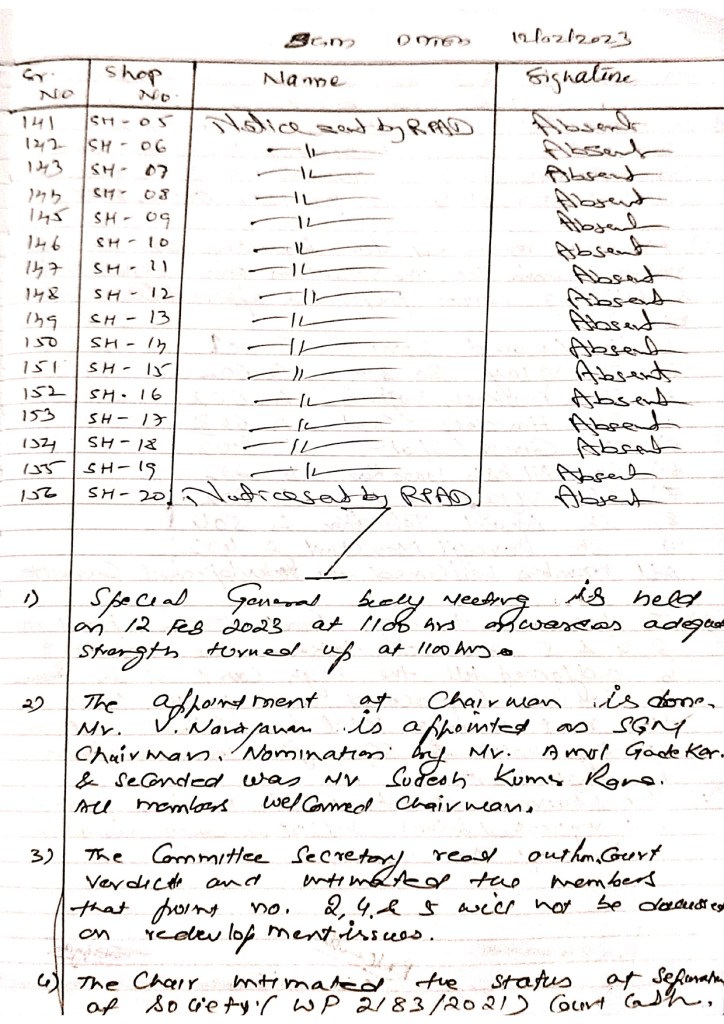 SGM DATED 12/02/2023
Sr. No Shop No. Name Signature
141 SH-05 Notice sent by RPAD Absent
142 SH-06 —11— Absent
143 SH-07 —11— Absent
144 SH-08 —11— Absent
145 SH-09 —11— Absent
146 SH-10 —11— Absent
147 SH-11 —11— Absent
148 SH-12 —11— Absent
149 SH-13 —11— Absent
150 SH-14 —11— Absent
151 SH-15 —11— Absent
152 SH-16 —11— Absent
153 SH-17 —11— Absent
154 SH-18 —11— Absent
155 SH-19 —11— Absent
156 SH-20 Notice sent by RPAD Absent
1) Special General body Meeting is held
on 12 Feb 2023 at 1100 hrs onwards as adequat
strength turned up at 1100 hrs.
2) The appointment of Chairman is done.
Mr. V. Narayanan is appointed as SGM
Chairman. Nomination by Mr. Amol Gadekar.
& seconded was Mr Sudesh Kumar Rana.
All members welcomed Chairman.
3) The Committee Secretary read out Court
Verdict and intimated the members
that point no. 2, 4, & 5 will not be discussed
on redevelopment issues.
4) The Chair intimated the status of
of Society (WP 2183/2021) Court